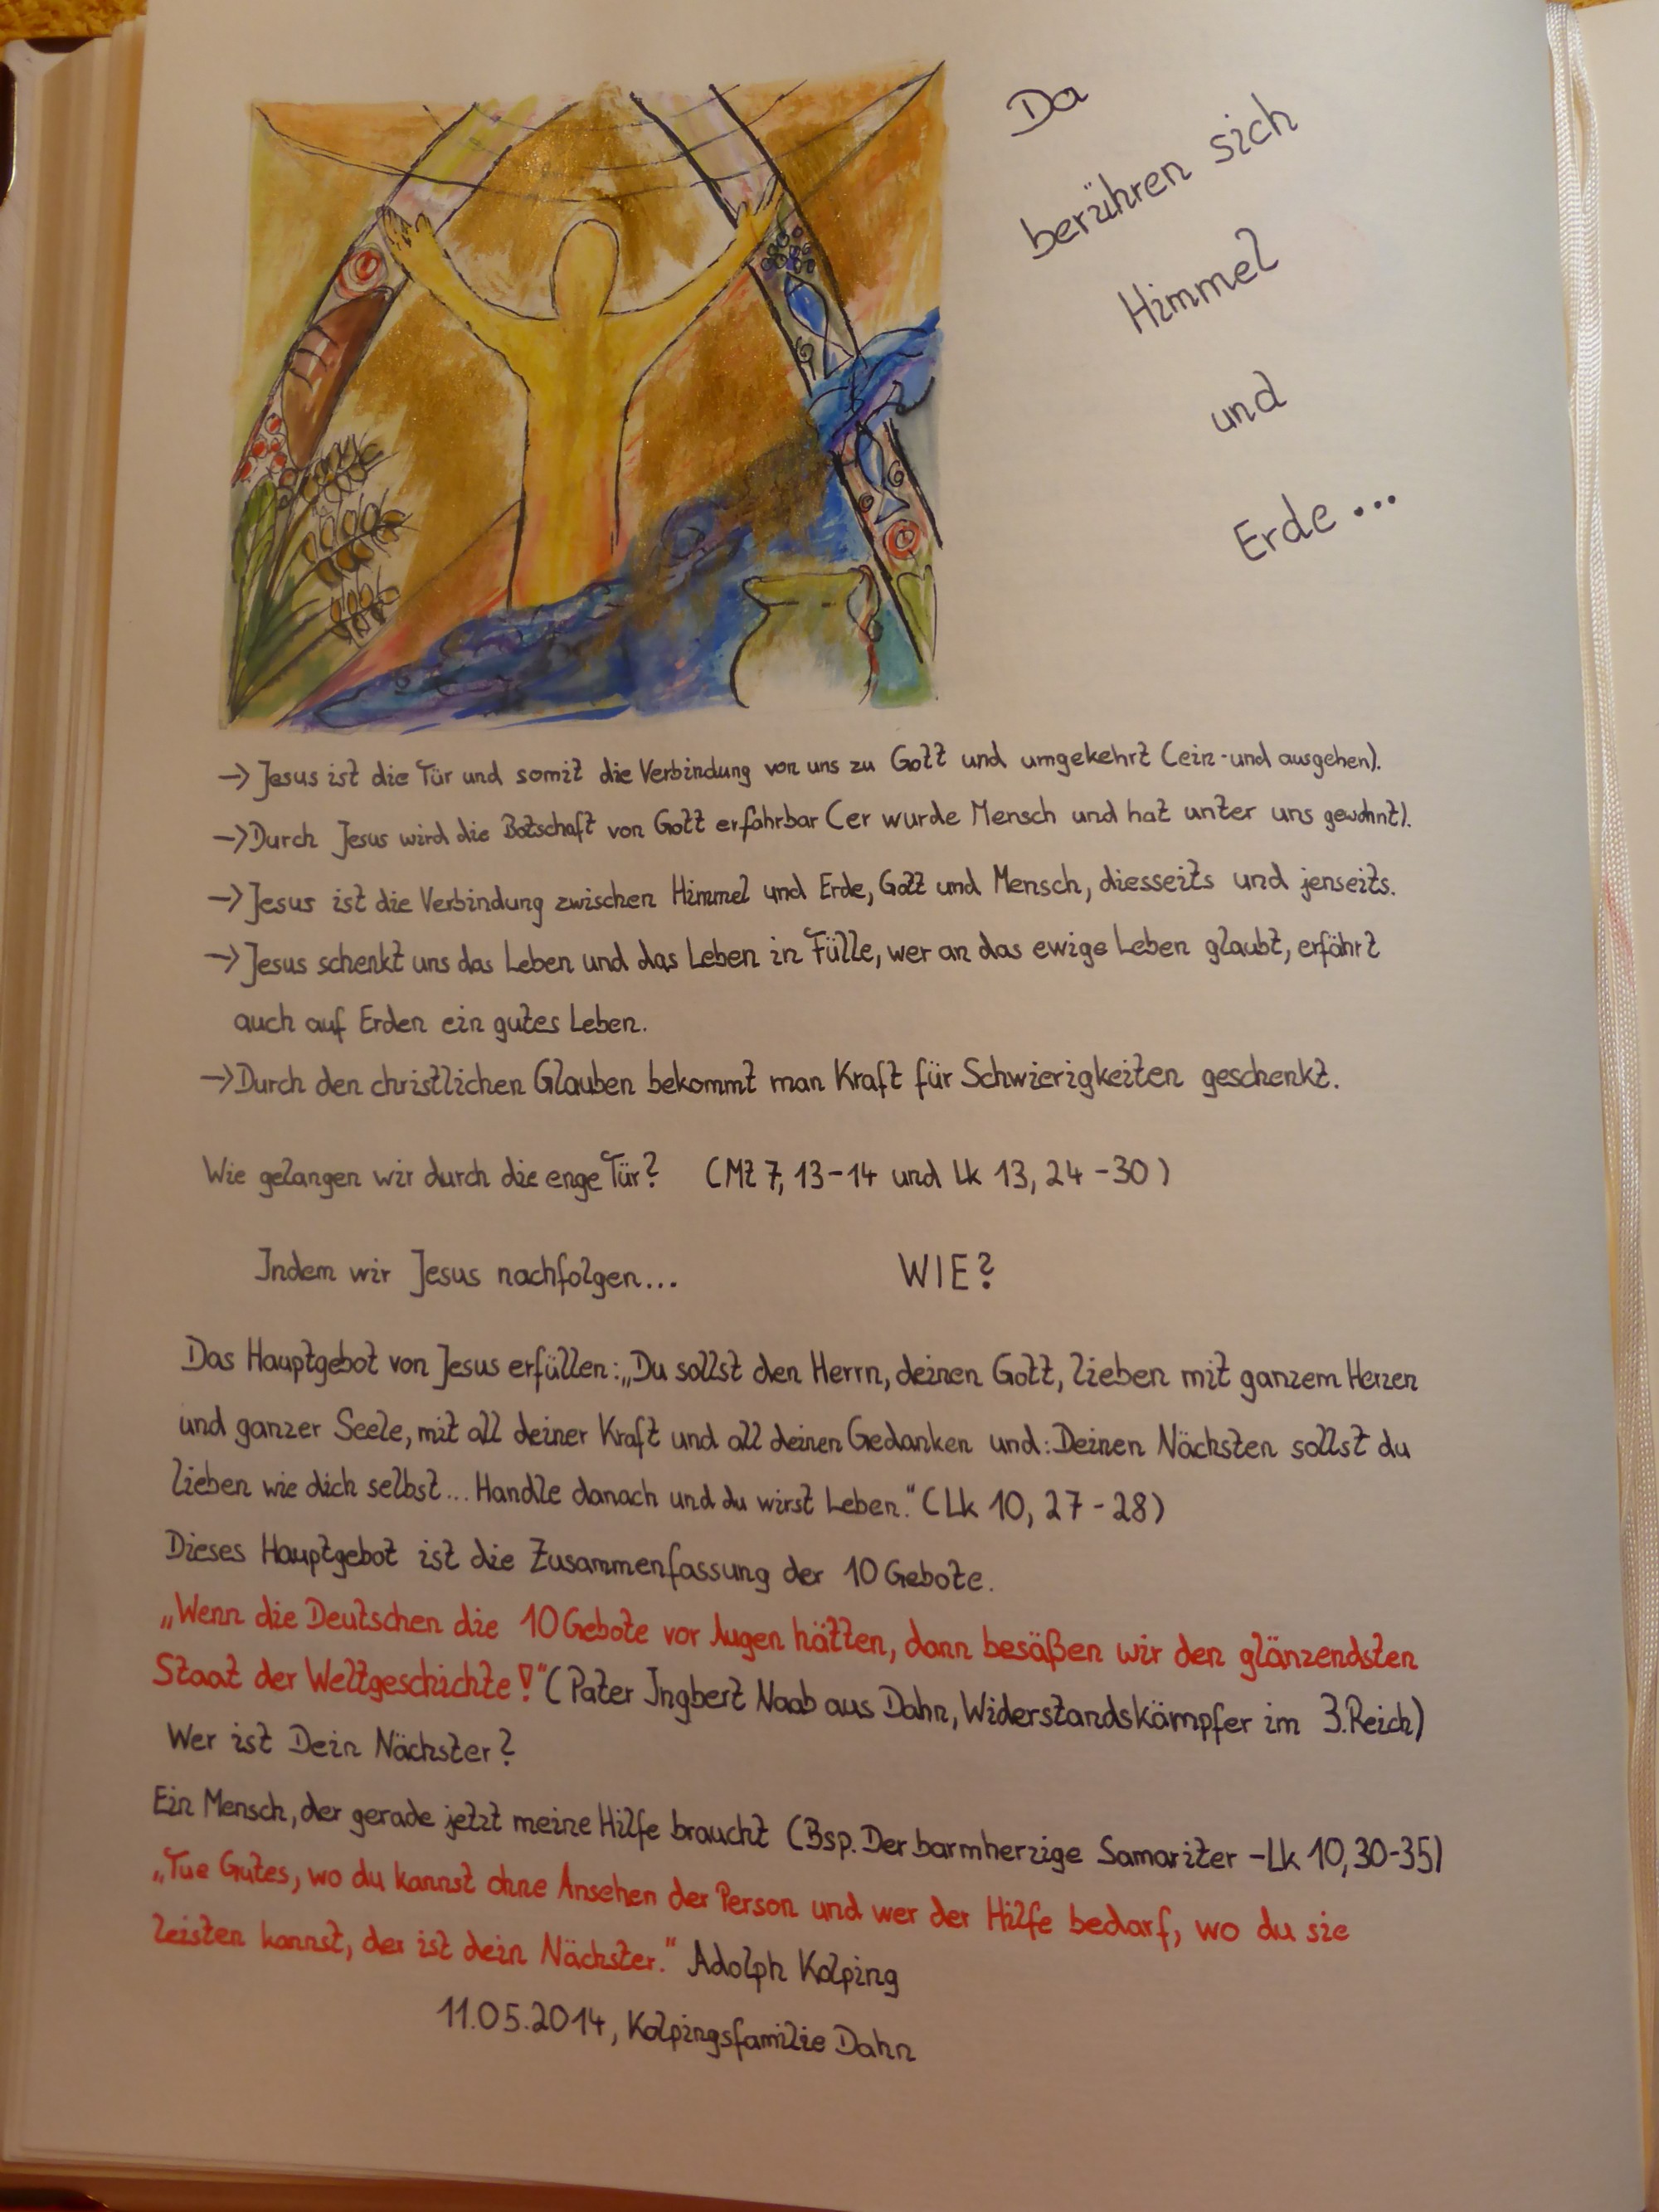 Da
berühren sich
Himmel
und
Erde...
→ Jesus ist die Tür und somit die Verbindung von uns zu Gott und umgekehrt (ein- und ausgehen).
→ Durch Jesus wird die Botschaft von Gott erfahrbar (er wurde Mensch und hat unter uns gewohnt).
→ Jesus ist die Verbindung zwischen Himmel und Erde, Gott und Mensch, diesseits und jenseits.
→ Jesus schenkt uns das Leben und das Leben in Fülle, wer an das ewige Leben glaubt, erfährt
auch auf Erden ein gutes Leben.
→ Durch den christlichen Glauben bekommt man Kraft für Schwierigkeiten geschenkt.
Wie gelangen wir durch die enge Tür? (Mt 7, 13-14 und Lk 13, 24-30)
Indem wir Jesus nachfolgen... WIE?
Das Hauptgebot von Jesus erfüllen: „Du sollst den Herrn, deinen Gott, lieben mit ganzem Herzen
und ganzer Seele, mit all deiner Kraft und all deinen Gedanken und: Deinen Nächsten sollst du
lieben wie dich selbst... Handle danach und du wirst Leben." (Lk 10, 27-28)
Dieses Hauptgebot ist die Zusammenfassung der 10 Gebote.
„Wenn die Deutschen die 10 Gebote vor Augen hätten, dann besäßen wir den glänzendsten
Staat der Weltgeschichte!" (Pater Ingbert Naab aus Dahn, Widerstandskämpfer im 3. Reich)
Wer ist Dein Nächster?
Ein Mensch, der gerade jetzt meine Hilfe braucht (Bsp. Der barmherzige Samariter - Lk 10, 30-35)
„Tue Gutes, wo du kannst ohne Ansehen der Person und wer der Hilfe bedarf, wo du sie
leisten kannst, der ist dein Nächster." Adolph Kolping
11.05.2014, Kolpingsfamilie Dahn